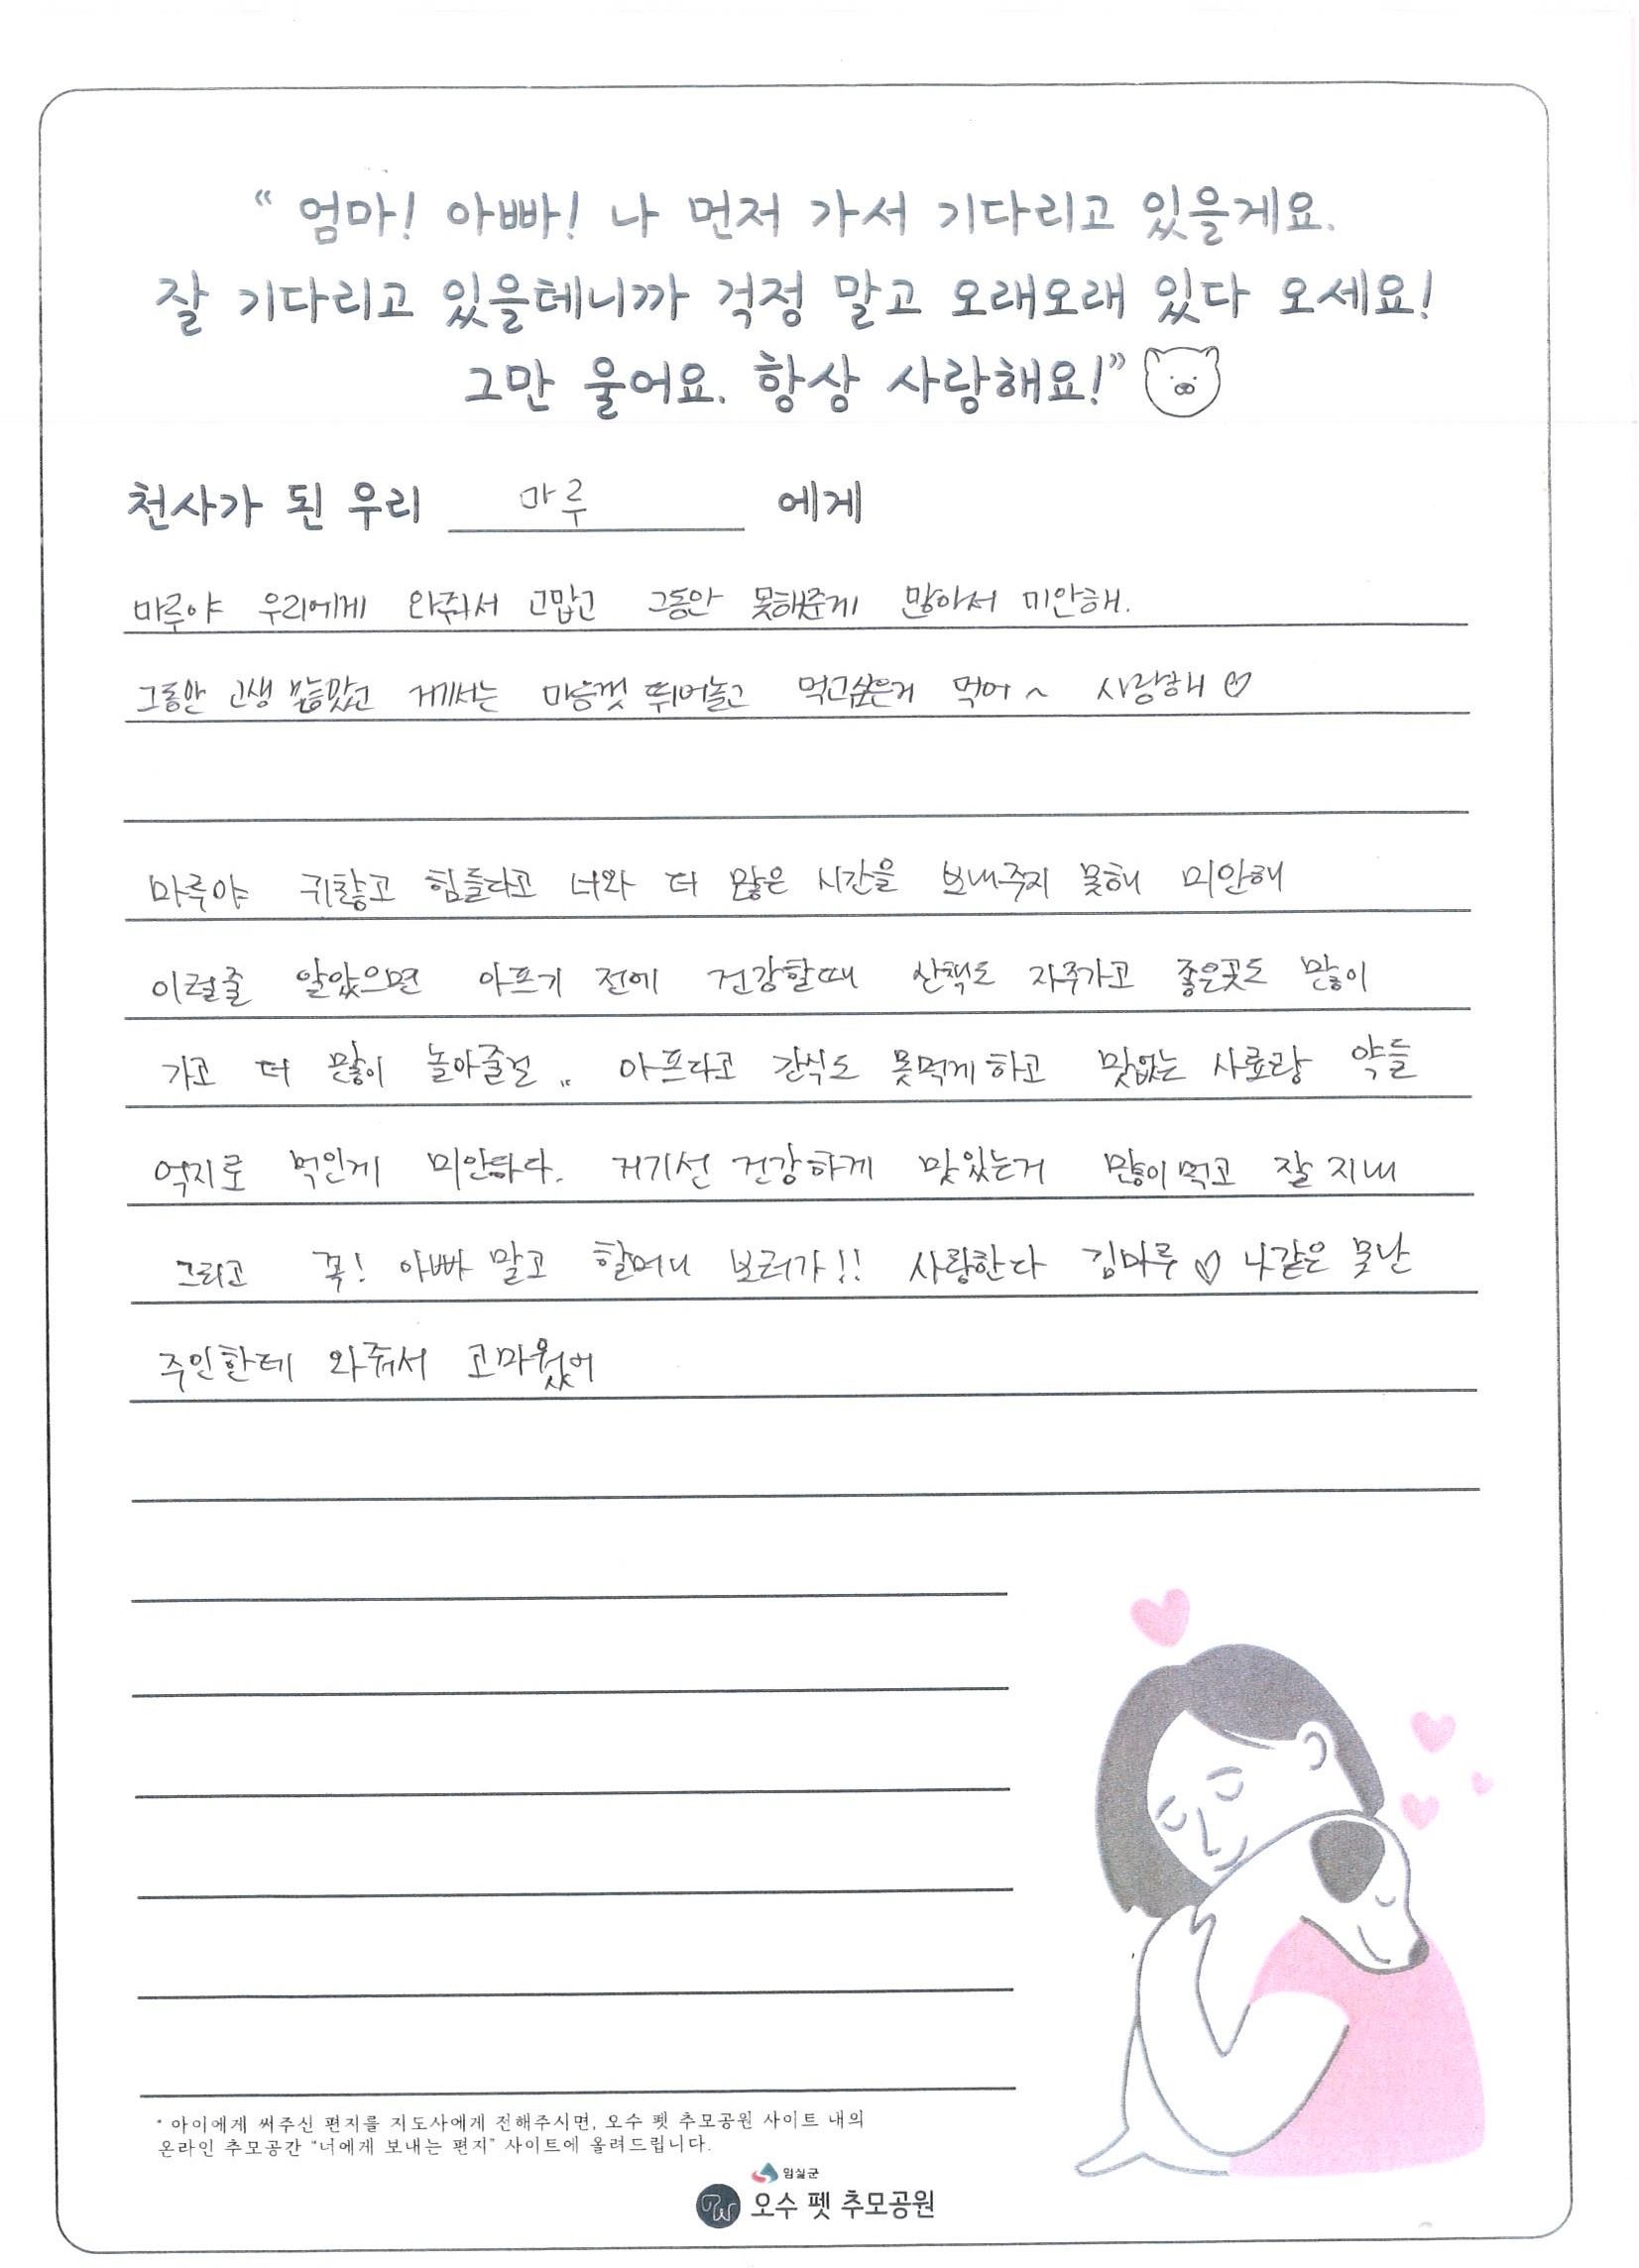 “ 엄마! 아빠! 나 먼저 가서 기다리고 있을게요.
잘 기다리고 있을테니까 걱정 말고 오래오래 있다 오세요!
그만 울어요. 항상 사랑해요!”
천사가 된 우리 마루 에게
마루야 우리에게 와줘서 고맙고 그동안 못해준게 많아서 미안해.
그동안 고생 많았고 거기서는 마음껏 뛰어놀고 먹고싶은거 먹어~ 사랑해♡
마루야 귀찮고 힘들다고 너와 더 많은 시간을 보내주지 못해 미안해
이럴줄 알았으면 아프기 전에 건강할때 산책도 자주가고 좋은곳도 많이
가고 더 많이 놀아줄걸 .. 아프다고 간식도 못먹게 하고 맛없는 사료랑 약들
억지로 먹인게 미안하다. 거기선 건강하게 맛있는거 많이 먹고 잘 지내
그리고 꼭! 아빠 말고 할머니 보러가!! 사랑한다 김마루♡ 나같은 못난
주인한테 와줘서 고마웠어
* 아이에게 써주신 편지를 지도사에게 전해주시면, 오수 펫 추모공원 사이트 내의
온라인 추모공간 "너에게 보내는 편지" 사이트에 올려드립니다.
임실군
PW 오수 펫 추모공원